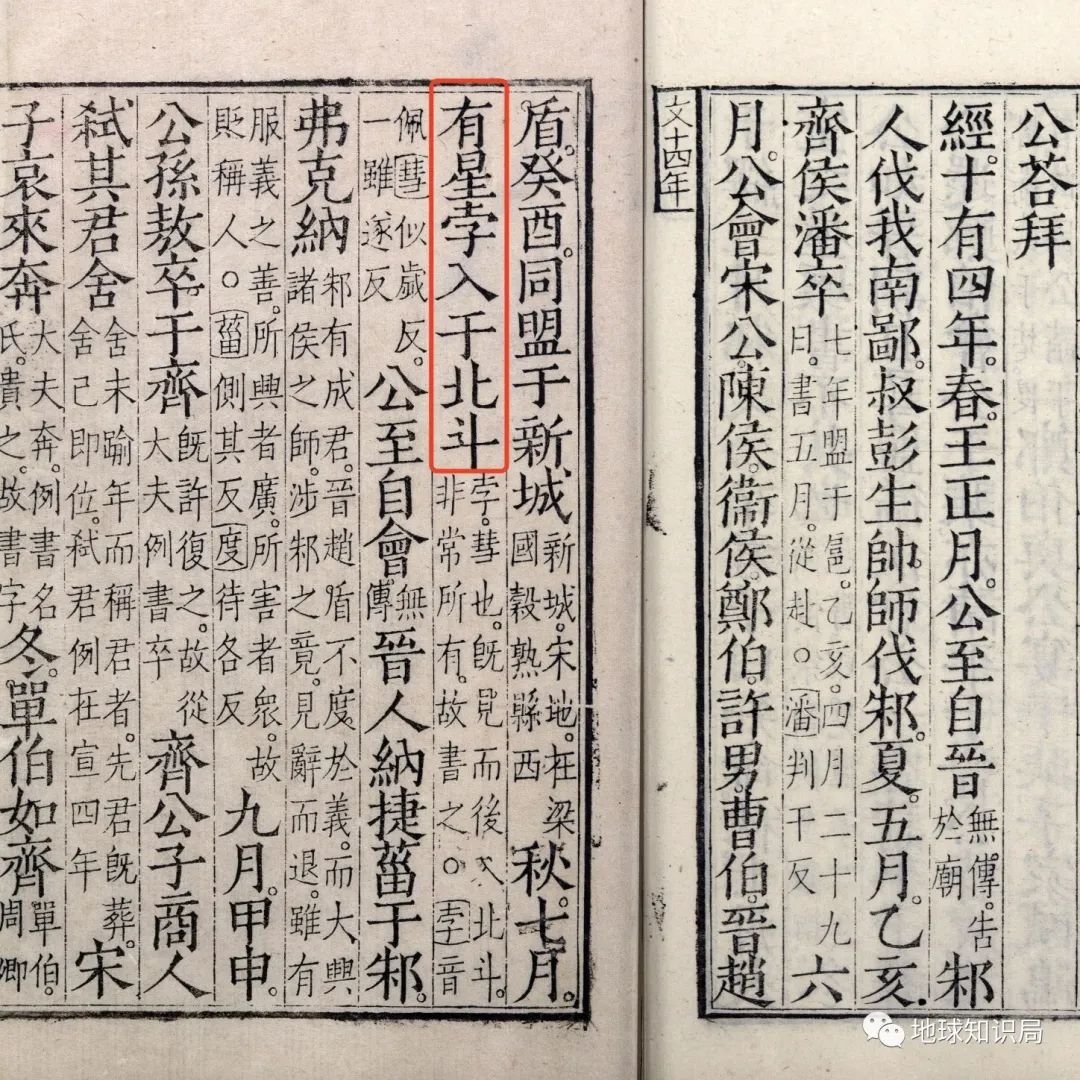 公荅拜
經。十有四年。春。王正月。公至自晉無傳。告於廟邾
人伐我南鄙。叔彭生帥師伐邾。夏。五月。乙亥。
齊侯潘卒七年盟于扈。乙亥。四月二十九日。書五月。從赴。○潘判干反六
月。公會宋公。陳侯。衞侯。鄭伯。許男。曹伯。晉趙
文十四年
盾。癸酉。同盟于新城新城。宋地。在梁國穀熟縣西秋。七月。
有星孛入于北斗孛。彗也。既見而後入北斗。非常所有。故書之。○孛音
佩彗似歲反。一雖遂反公至自會。無傳晉人納捷菑于邾。
弗克納邾有成君。晉趙盾不度於義。而大興諸侯之師。涉邾之竟。見辭而退。雖有
服義之善。所興者廣。所害者衆。故貶稱人。○菑側其反度待各反九月。甲申。
公孫敖卒。于齊既許復之。故從大夫例書卒齊公子商人
弑其君舍舍未踰年而稱君者。先君既葬。舍已即位。弑君例在宣四年宋
子哀來奔大夫奔。例書名氏。貴之。故書字冬。單伯如齊單伯。周卿
地球知识局